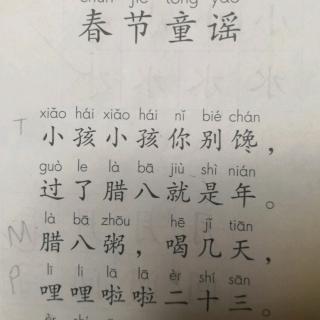 春节童谣
T
xiǎo hái xiǎo hái nǐ bié chán
小孩小孩你别馋，
guò le là bā jiù shì nián
过了腊八就是年。
là bā zhōu hē jǐ tiān
M
腊八粥，喝几天，
P
lī lī lā lā èr shí sān
哩哩啦啦二十三。